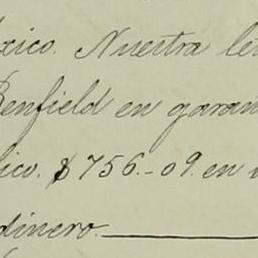 xico. Nuestra le
Benfield en garan
ico. $756.-09. en
dinero.